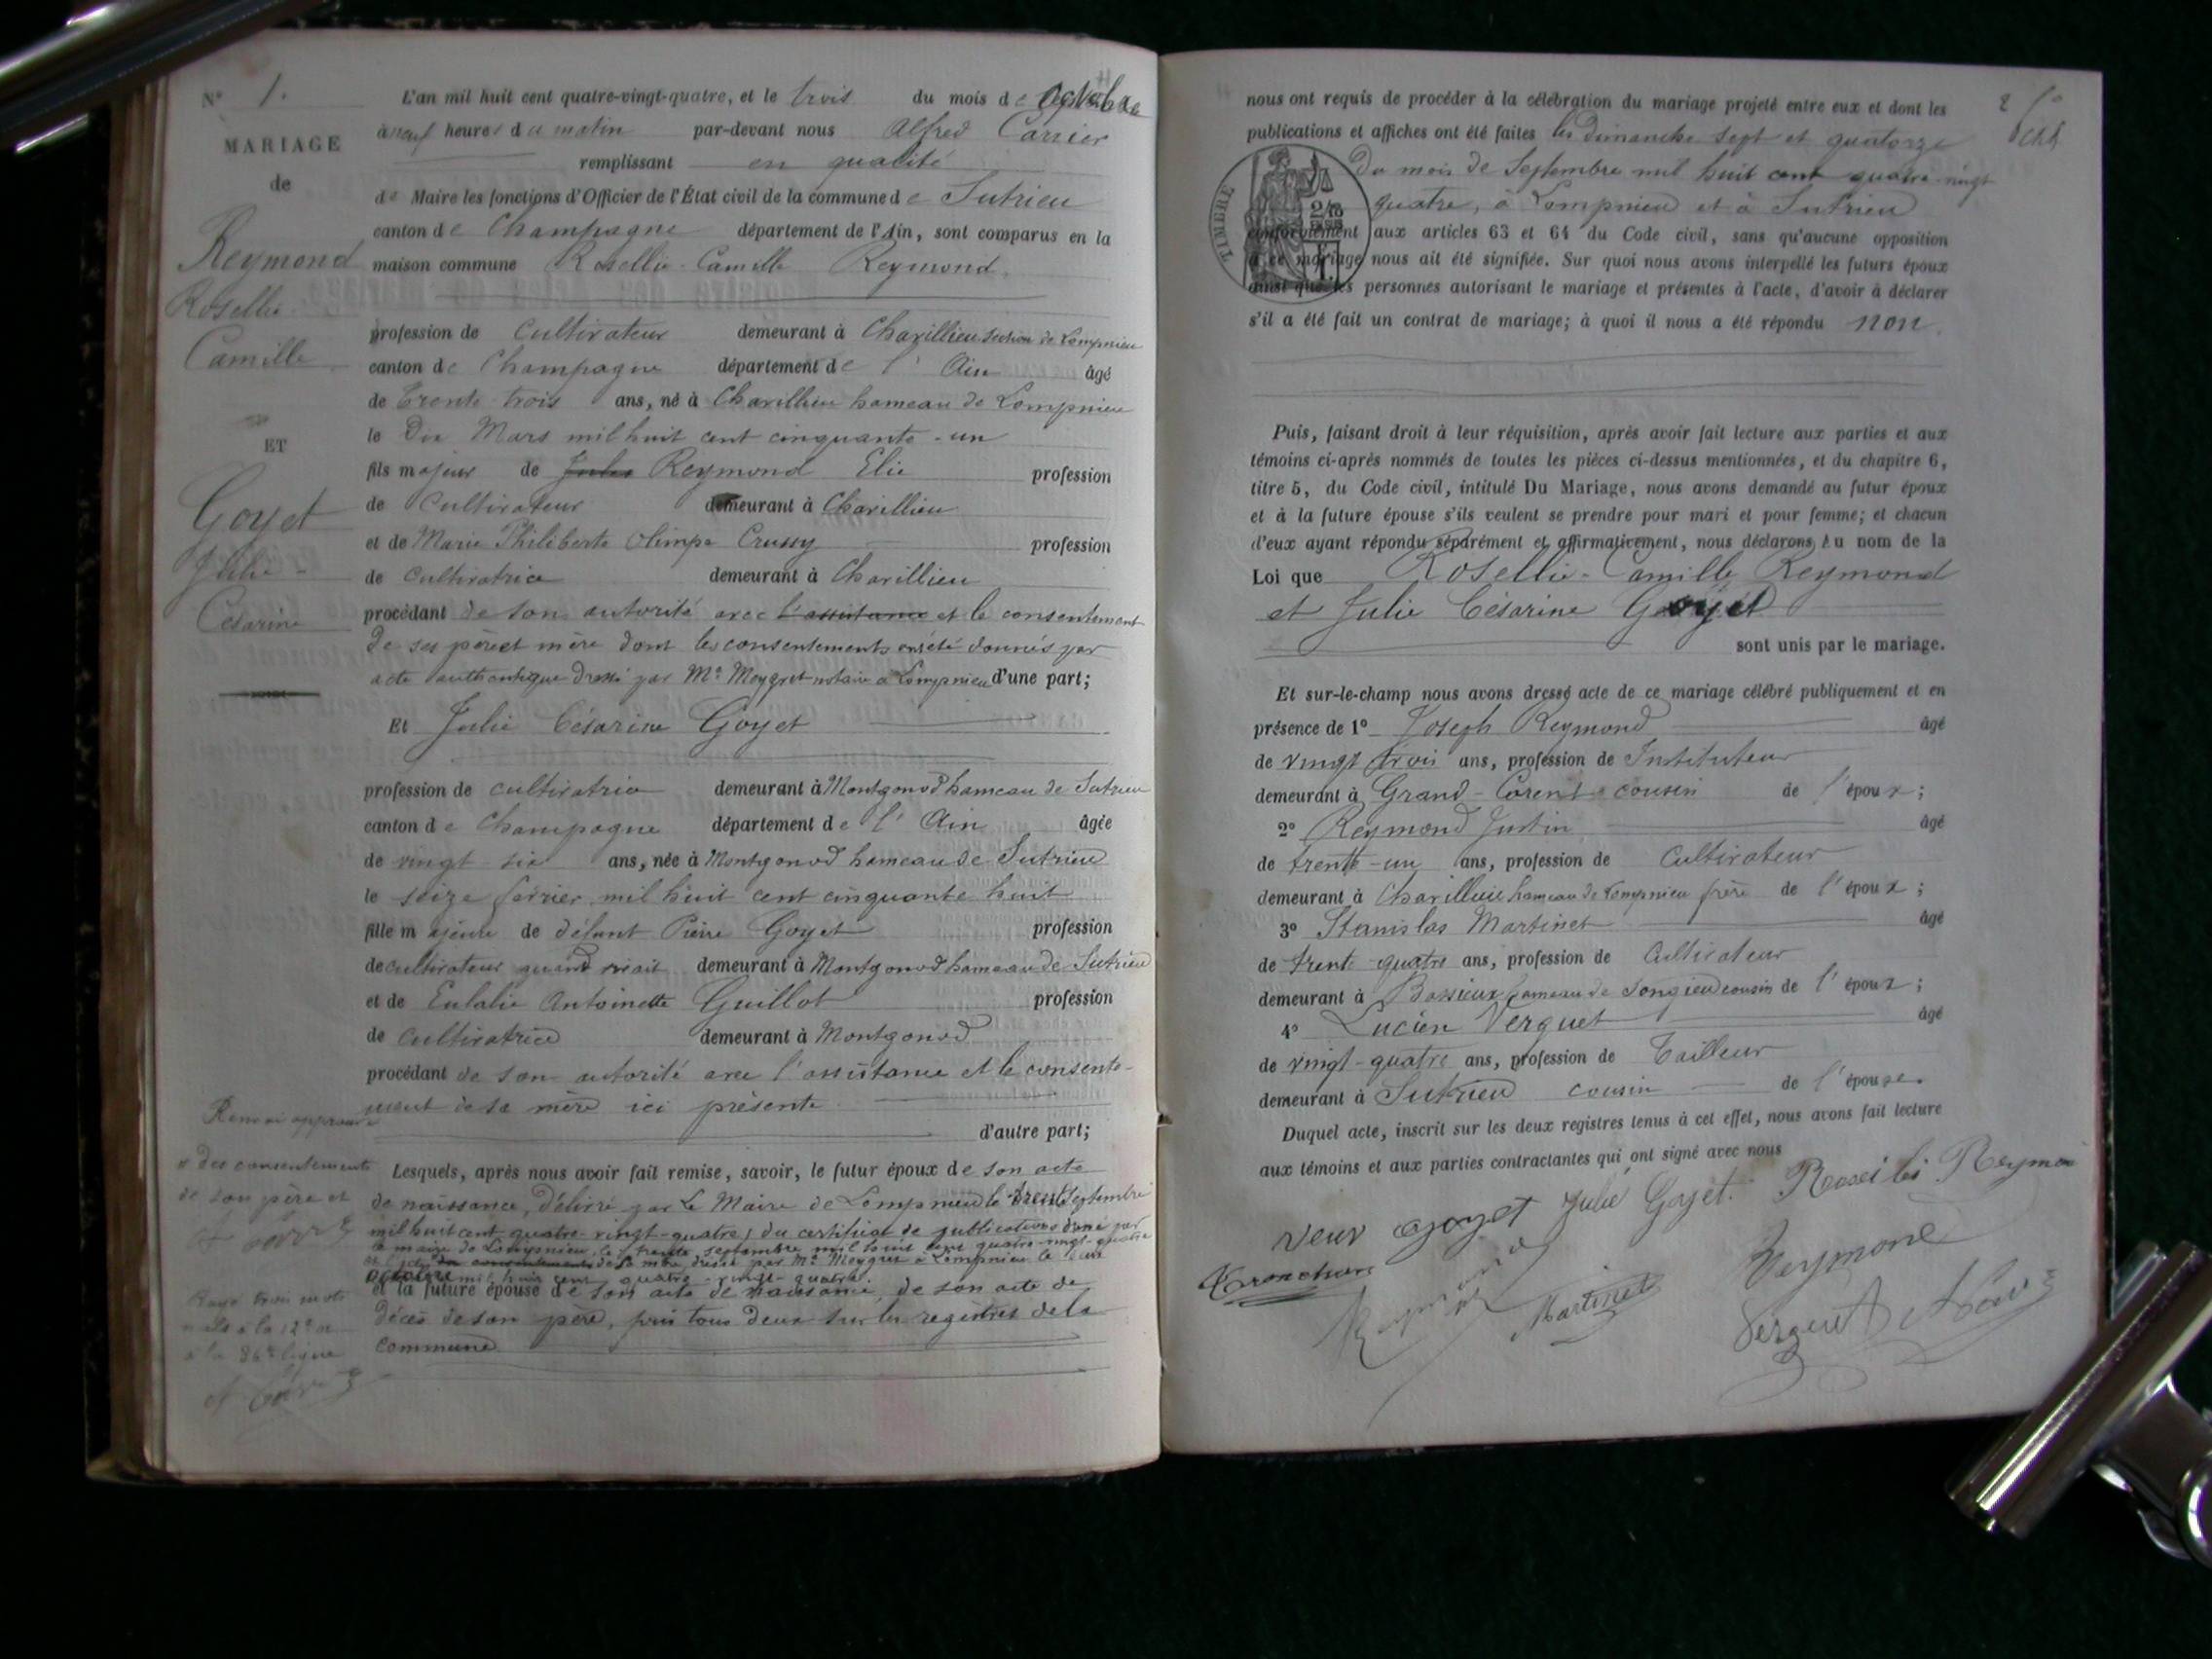 N° 1.
MARIAGE
de
Reymond
Rosellie
Camille
ET
Goyet
Julie
Césarine
L'an mil huit cent quatre-vingt-quatre, et le trois du mois de octobre
à neuf heures du matin par-devant nous Alfred Carrier
remplissant en qualité
de Maire les fonctions d'Officier de l'État civil de la commune de Sutrieu
canton de Champagne département de l'Ain, sont comparus en la
maison commune Rosellie-Camille Reymond.
profession de cultivateur demeurant à Chavillieu section de Lompnieu
canton de Champagne département de l'Ain âgé
de trente trois ans, né à Chavillieu hameau de Lompnieu
le Dix Mars mil huit cent cinquante-un
fils majeur de Jules Reymond Elie profession
de cultivateur demeurant à Chavillieu
et de Marie Philiberte Olimpe Crussy profession
de cultivatrice demeurant à Chavillieu
procédant de son autorité avec l'assistance et le consentement
de ses père et mère dont les consentements ont été donnés par
acte authentique dressé par Me Meygret notaire à Lompnieu d'une part;
Et Julie Césarine Goyet
profession de cultivatrice demeurant à Montgonod hameau de Sutrieu
canton de Champagne département de l'Ain âgée
de vingt-six ans, née à Montgonod hameau de Sutrieu
le seize février mil huit cent cinquante huit
fille majeure de défunt Pierre Goyet profession
de cultivateur quand vivait demeurant à Montgonod hameau de Sutrieu
et de Eulalie Antoinette Guillot profession
de cultivatrice demeurant à Montgonod
procédant de son autorité avec l'assistance et le consente-
ment de sa mère ici présente
d'autre part;
Renvoi approuvé
x des consentements
de son père et
Lesquels, après nous avoir fait remise, savoir, le futur époux de son acte
de naissance, délivré par Le Maire de Lompnieu le trente septembre
mil huit cent quatre-vingt-quatre, du certificat de publications donné par
le maire de Lompnieu, le trente septembre mil huit cent quatre-vingt-quatre
consentements de sa mère dressé par Me Meygret à Lompnieu le deux
octobre mil huit cent quatre-vingt-quatre
et la future épouse de son acte de naissance, de son acte de
décès de son père, pris tous deux sur les registres de la
commune
Rayé trois mots
nuls à la 12e
36e ligne
nous ont requis de procéder à la célébration du mariage projeté entre eux et dont les
publications et affiches ont été faites les dimanche sept et quatorze
du mois de Septembre mil huit cent quatre-vingt
quatre, à Lompnieu et à Sutrieu
TIMBRE
conformément aux articles 63 et 64 du Code civil, sans qu'aucune opposition
à ce mariage nous ait été signifiée. Sur quoi nous avons interpellé les futurs époux
ainsi que les personnes autorisant le mariage et présentes à l'acte, d'avoir à déclarer
s'il a été fait un contrat de mariage; à quoi il nous a été répondu non.
Puis, faisant droit à leur réquisition, après avoir fait lecture aux parties et aux
témoins ci-après nommés de toutes les pièces ci-dessus mentionnées, et du chapitre 6,
titre 5, du Code civil, intitulé Du Mariage, nous avons demandé au futur époux
et à la future épouse s'ils veulent se prendre pour mari et pour femme; et chacun
d'eux ayant répondu séparément et affirmativement, nous déclarons au nom de la
Loi que Rosellie-Camille Reymond
et Julie Césarine Goyet
sont unis par le mariage.
Et sur-le-champ nous avons dressé acte de ce mariage célébré publiquement et en
présence de 1° Joseph Reymond âgé
de vingt trois ans, profession de Instituteur
demeurant à Grand-Corent cousin de l'époux;
2° Reymond Justin âgé
de trente-un ans, profession de cultivateur
demeurant à Chavillieu hameau de Lompnieu frère de l'époux;
3° Stanislas Martinet âgé
de trente-quatre ans, profession de cultivateur
demeurant à Bassieux hameau de Songieu cousin de l'époux;
4° Lucien Verguet âgé
de vingt-quatre ans, profession de Tailleur
demeurant à Sutrieu cousin de l'épouse.
Duquel acte, inscrit sur les deux registres tenus à cet effet, nous avons fait lecture
aux témoins et aux parties contractantes qui ont signé avec nous
veuv goyet Julie Goyet. Reymon
Reymond
Martinet
Verguet